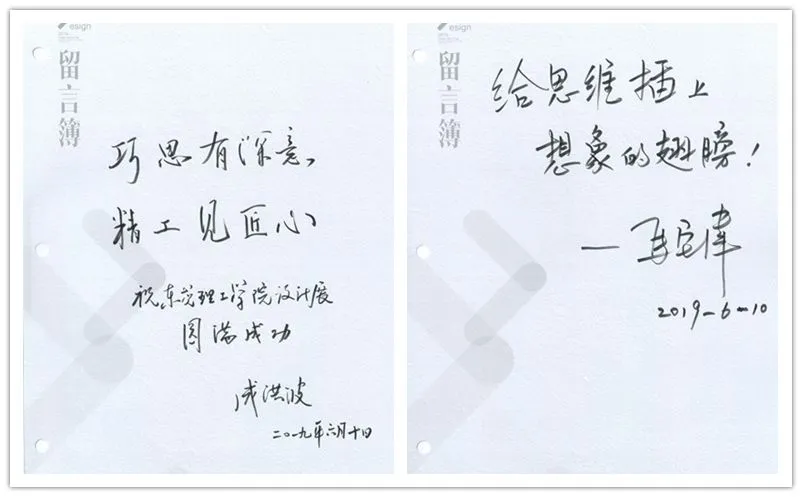 esign
留言簿
巧思有深意,
精工见匠心
祝东莞理工学院设计展
圆满成功
成洪波
二〇一九年六月十日
esign
留言簿
给思维插上
想象的翅膀!
2019-6-10